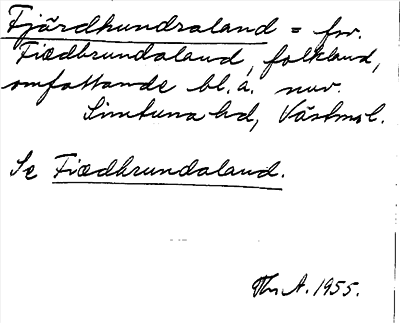 Fjärdhundraland = fsv.
Fiædhrundaland, folkland,
omfattande bl.a. nuv.
Simtuna hd, Västml.
Se Fiædhrundaland.
A. 1955.